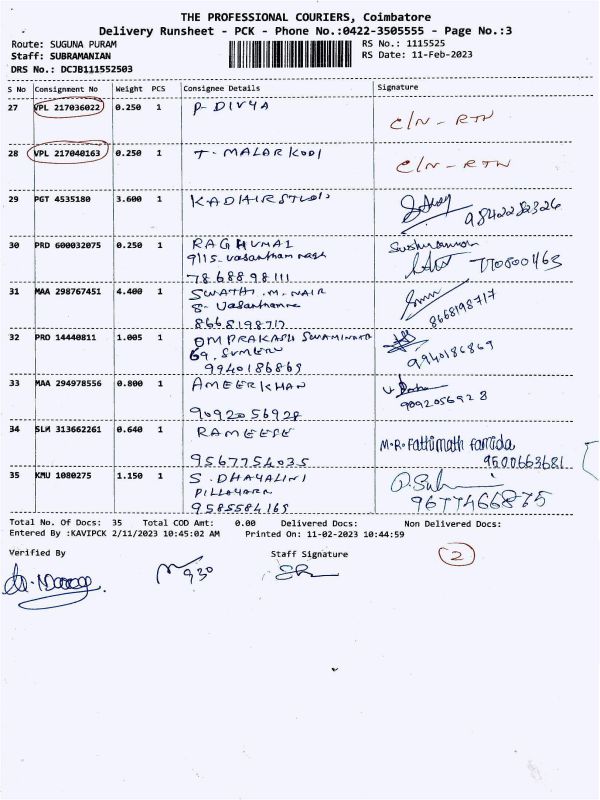 THE PROFESSIONAL COURIERS, Coimbatore
Delivery Runsheet - PCK - Phone No.:0422-3505555 - Page No.:3
Route: SUGUNA PURAM RS No.: 1115525
Staff: SUBRAMANIAN RS Date: 11-Feb-2023
DRS No.: DCJB111552503
S No Consignment No Weight PCS Consignee Details Signature
27 VPL 217036022 0.250 1 P. DIVYA C/N - RTN
28 VPL 217040163 0.250 1 T. MALARKODI C/N - RTN
29 PGT 4535180 3.600 1 KADHIRSTUDIO 9842282326
30 PRD 600032075 0.250 1 RAGHUMAL
9115. Vasantham nagar
7868898111 770800463
31 MAA 298767451 4.400 1 SWATHI.M.NAIR
8-
8668198717 8668198717
32 PRO 14440811 1.005 1 OMPRAKASH SWAMINATH
69, SUMERU
9940186869 9940186869
33 MAA 294978556 0.800 1 AMEERKHAN
9092056928 9092056928
34 SLM 313662261 0.640 1 RAMEESE M.R. Fathimath Famida
9567754035 9500663681
35 KMU 1080275 1.150 1 S. DHAYALINI
9585584169 9677466875
Total No. Of Docs: 35 Total COD Amt: 0.00 Delivered Docs: Non Delivered Docs:
Entered By :KAVIPCK 2/11/2023 10:45:02 AM Printed On: 11-02-2023 10:44:59
Verified By Staff Signature 2
930